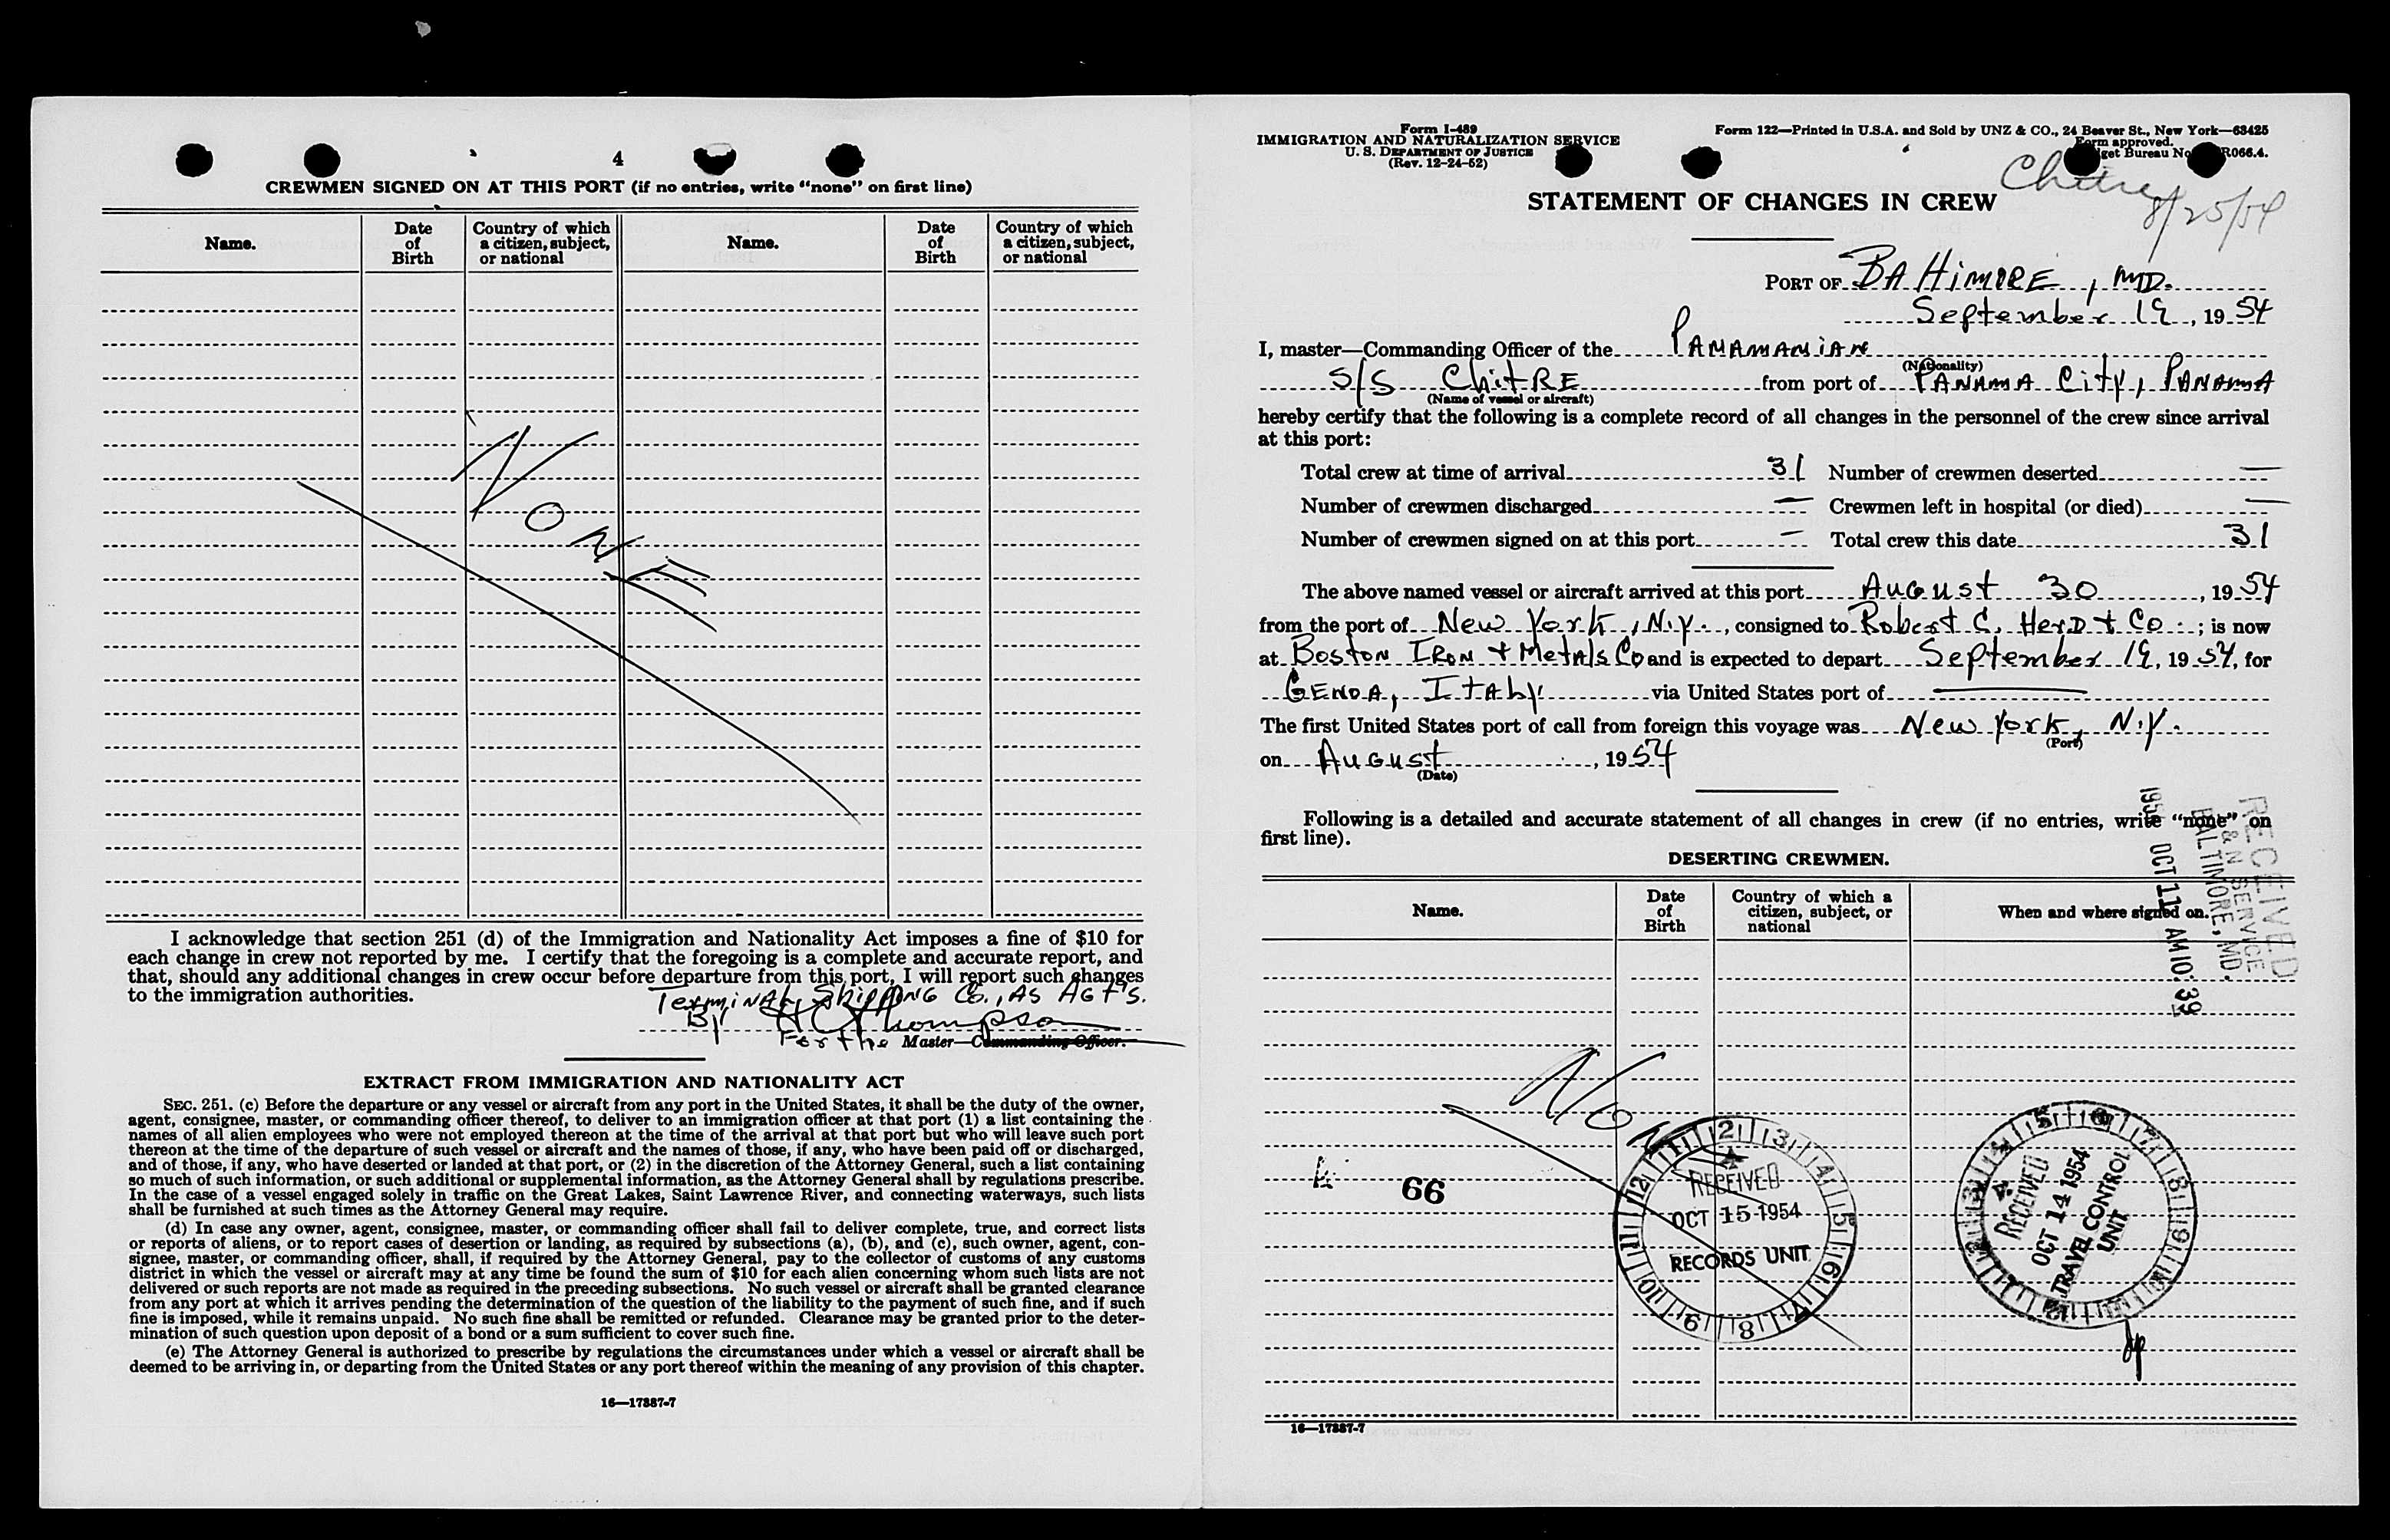 4
CREWMEN SIGNED ON AT THIS PORT (if no entries, write "none" on first line)
Name.
Date of Birth
Country of which a citizen, subject, or national
Name.
Date of Birth
Country of which a citizen, subject, or national
NONE
I acknowledge that section 251 (d) of the Immigration and Nationality Act imposes a fine of $10 for
each change in crew not reported by me. I certify that the foregoing is a complete and accurate report, and
that, should any additional changes in crew occur before departure from this port, I will report such changes
to the immigration authorities.
Terminal Shipping Co., As Agt's.
By H C Thompson
For the Master—Commanding Officer.
EXTRACT FROM IMMIGRATION AND NATIONALITY ACT
SEC. 251. (c) Before the departure or any vessel or aircraft from any port in the United States, it shall be the duty of the owner,
agent, consignee, master, or commanding officer thereof, to deliver to an immigration officer at that port (1) a list containing the
names of all alien employees who were not employed thereon at the time of the arrival at that port but who will leave such port
thereon at the time of the departure of such vessel or aircraft and the names of those, if any, who have been paid off or discharged,
and of those, if any, who have deserted or landed at that port, or (2) in the discretion of the Attorney General, such a list containing
so much of such information, or such additional or supplemental information, as the Attorney General shall by regulations prescribe.
In the case of a vessel engaged solely in traffic on the Great Lakes, Saint Lawrence River, and connecting waterways, such lists
shall be furnished at such times as the Attorney General may require.
(d) In case any owner, agent, consignee, master, or commanding officer shall fail to deliver complete, true, and correct lists
or reports of aliens, or to report cases of desertion or landing, as required by subsections (a), (b), and (c), such owner, agent, con-
signee, master, or commanding officer, shall, if required by the Attorney General, pay to the collector of customs of any customs
district in which the vessel or aircraft may at any time be found the sum of $10 for each alien concerning whom such lists are not
delivered or such reports are not made as required in the preceding subsections. No such vessel or aircraft shall be granted clearance
from any port at which it arrives pending the determination of the question of the liability to the payment of such fine, and if such
fine is imposed, while it remains unpaid. No such fine shall be remitted or refunded. Clearance may be granted prior to the deter-
mination of such question upon deposit of a bond or a sum sufficient to cover such fine.
(e) The Attorney General is authorized to prescribe by regulations the circumstances under which a vessel or aircraft shall be
deemed to be arriving in, or departing from the United States or any port thereof within the meaning of any provision of this chapter.
16—17887-7
Form I-489
IMMIGRATION AND NATURALIZATION SERVICE
U. S. DEPARTMENT OF JUSTICE
(Rev. 12-24-52)
Form 122—Printed in U.S.A. and Sold by UNZ & CO., 24 Beaver St., New York—68425
Form approved.
get Bureau No R066.4.
Chitre
8/25/54
STATEMENT OF CHANGES IN CREW
PORT OF BAltimoRE, MD.
September 19, 1954
I, master—Commanding Officer of the PANAMANIAN
(Nationality)
S/S ChitRE from port of PANAMA City, PANAMA
(Name of vessel or aircraft)
hereby certify that the following is a complete record of all changes in the personnel of the crew since arrival
at this port:
Total crew at time of arrival 31 Number of crewmen deserted —
Number of crewmen discharged — Crewmen left in hospital (or died) —
Number of crewmen signed on at this port — Total crew this date 31
The above named vessel or aircraft arrived at this port August 30, 1954
from the port of New York, N.Y., consigned to Robert C. Herd & Co.; is now
at Boston Iron & Metals Co and is expected to depart September 19, 1954, for
GENOA, ItAly via United States port of ———
The first United States port of call from foreign this voyage was New York, N.Y.
(Port)
on August, 1954
(Date)
Following is a detailed and accurate statement of all changes in crew (if no entries, write "none" on
first line).
RECEIVED
& N SERVICE
BALTIMORE, MD.
1954 OCT 11 AM 10:39
DESERTING CREWMEN.
Name.
Date of Birth
Country of which a citizen, subject, or national
When and where signed on.
66
RECEIVED
OCT 15 1954
RECORDS UNIT
RECEIVED
OCT 14 1954
TRAVEL CONTROL
UNIT
16—17887-7